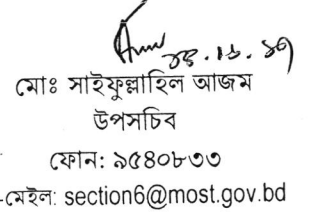 মোঃ সাইফুল্লাহিল আজম
উপসচিব
ফোন: ৯৫৪০৮৩৩
-মেইল: section6@most.gov.bd